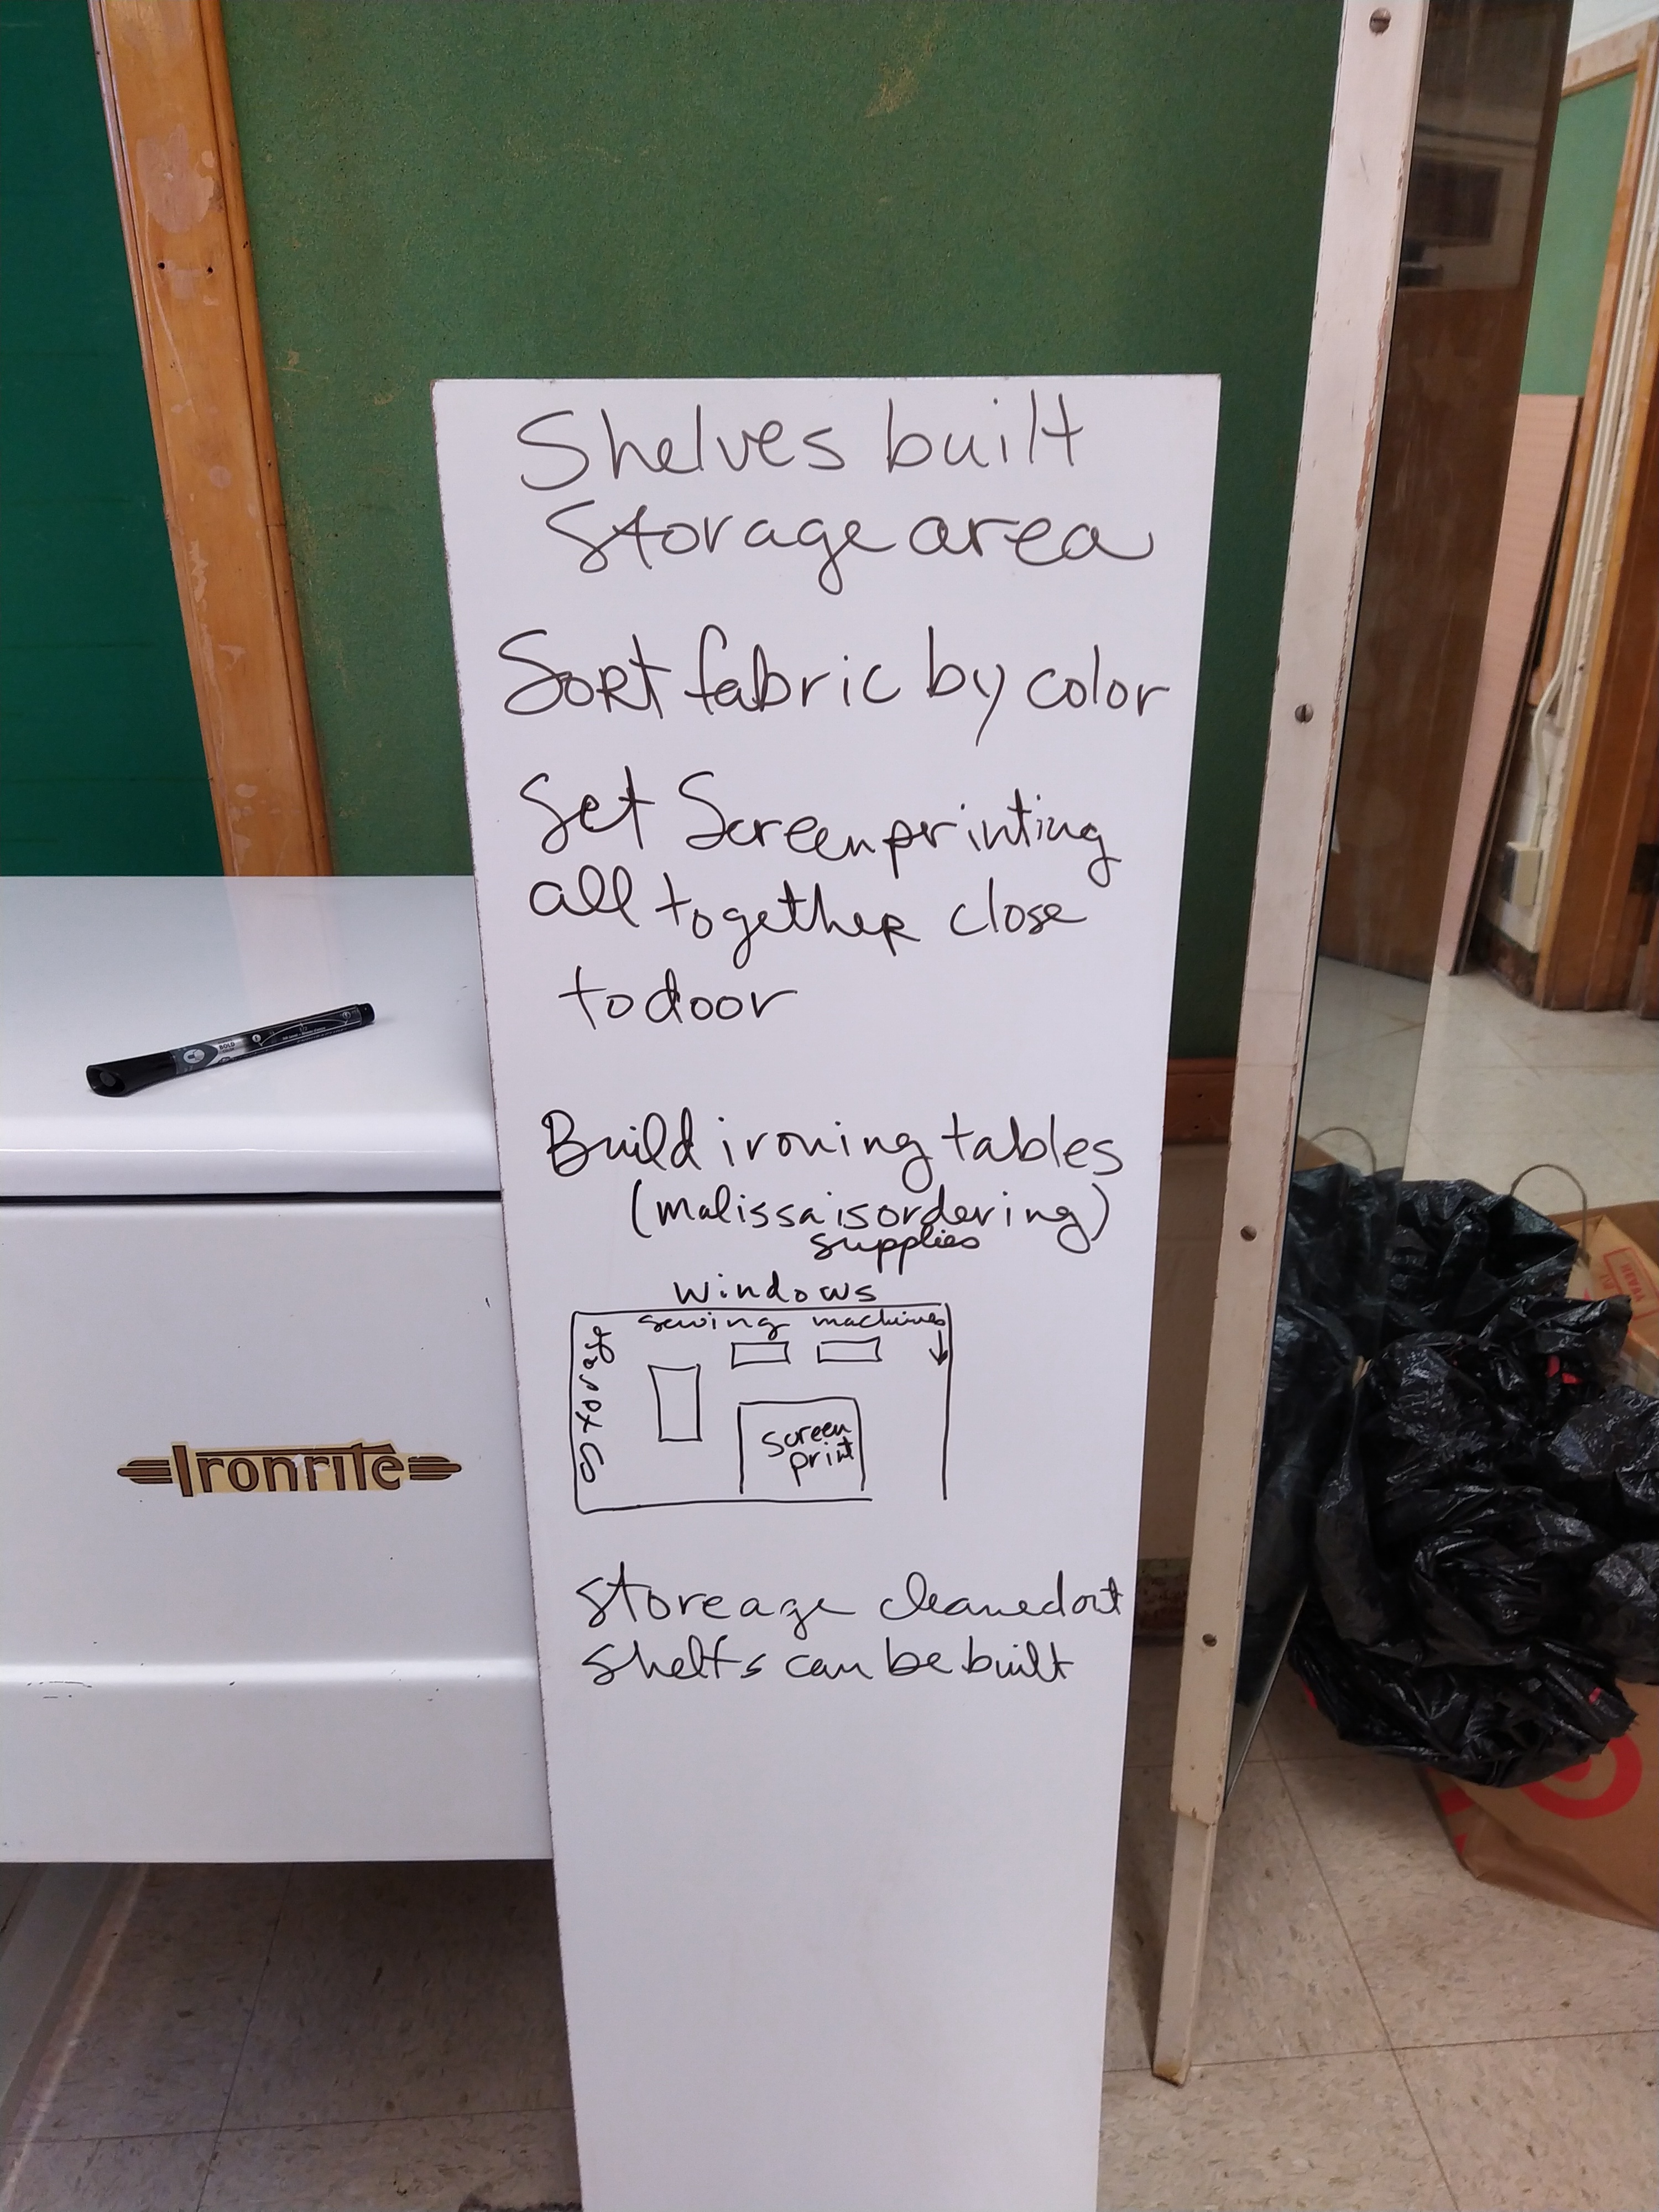 Shelves built
Storage area
Sort fabric by color
Set Screenprinting
all together close
to door
Build ironing tables
(malissa is ordering)
supplies
windows
sewing machines
storage
Screen
print
storeage cleaned out
shelfs can be built
Ironrite
BOLD